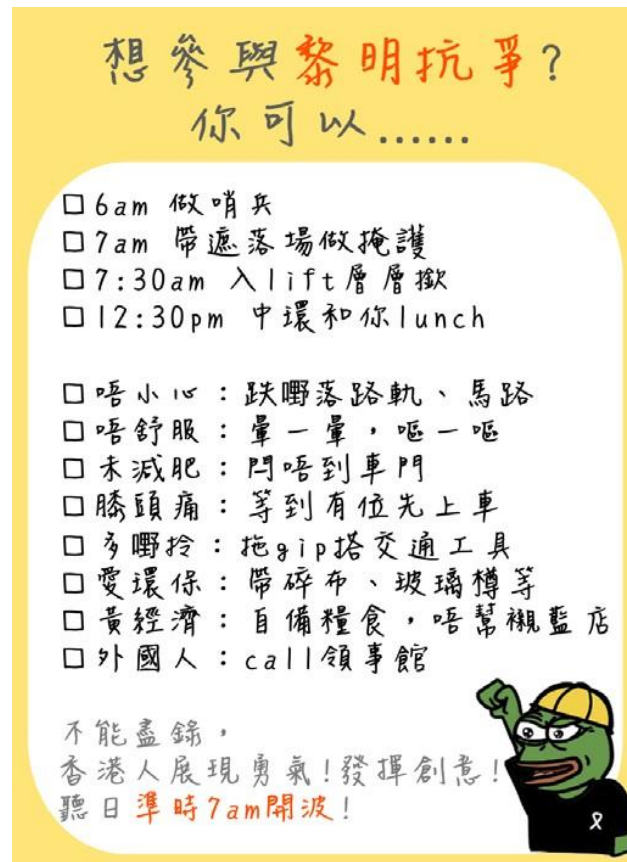 想參與黎明抗爭?
你可以......
□6am 做哨兵
□7am 帶遮落場做掩護
□7:30am 入lift層層撳
□12:30pm 中環和你lunch
□唔小心：跌嘢落路軌、馬路
□唔舒服：暈一暈，嘔一嘔
□未減肥：閂唔到車門
□膝頭痛：等到有位先上車
□多嘢拎：拖gip搭交通工具
□愛環保：帶碎布、玻璃樽等
□黃經濟：自備糧食，唔幫襯藍店
□外國人：call領事館
不能盡錄，
香港人展現勇氣!發揮創意!
聽日準時7am開波!